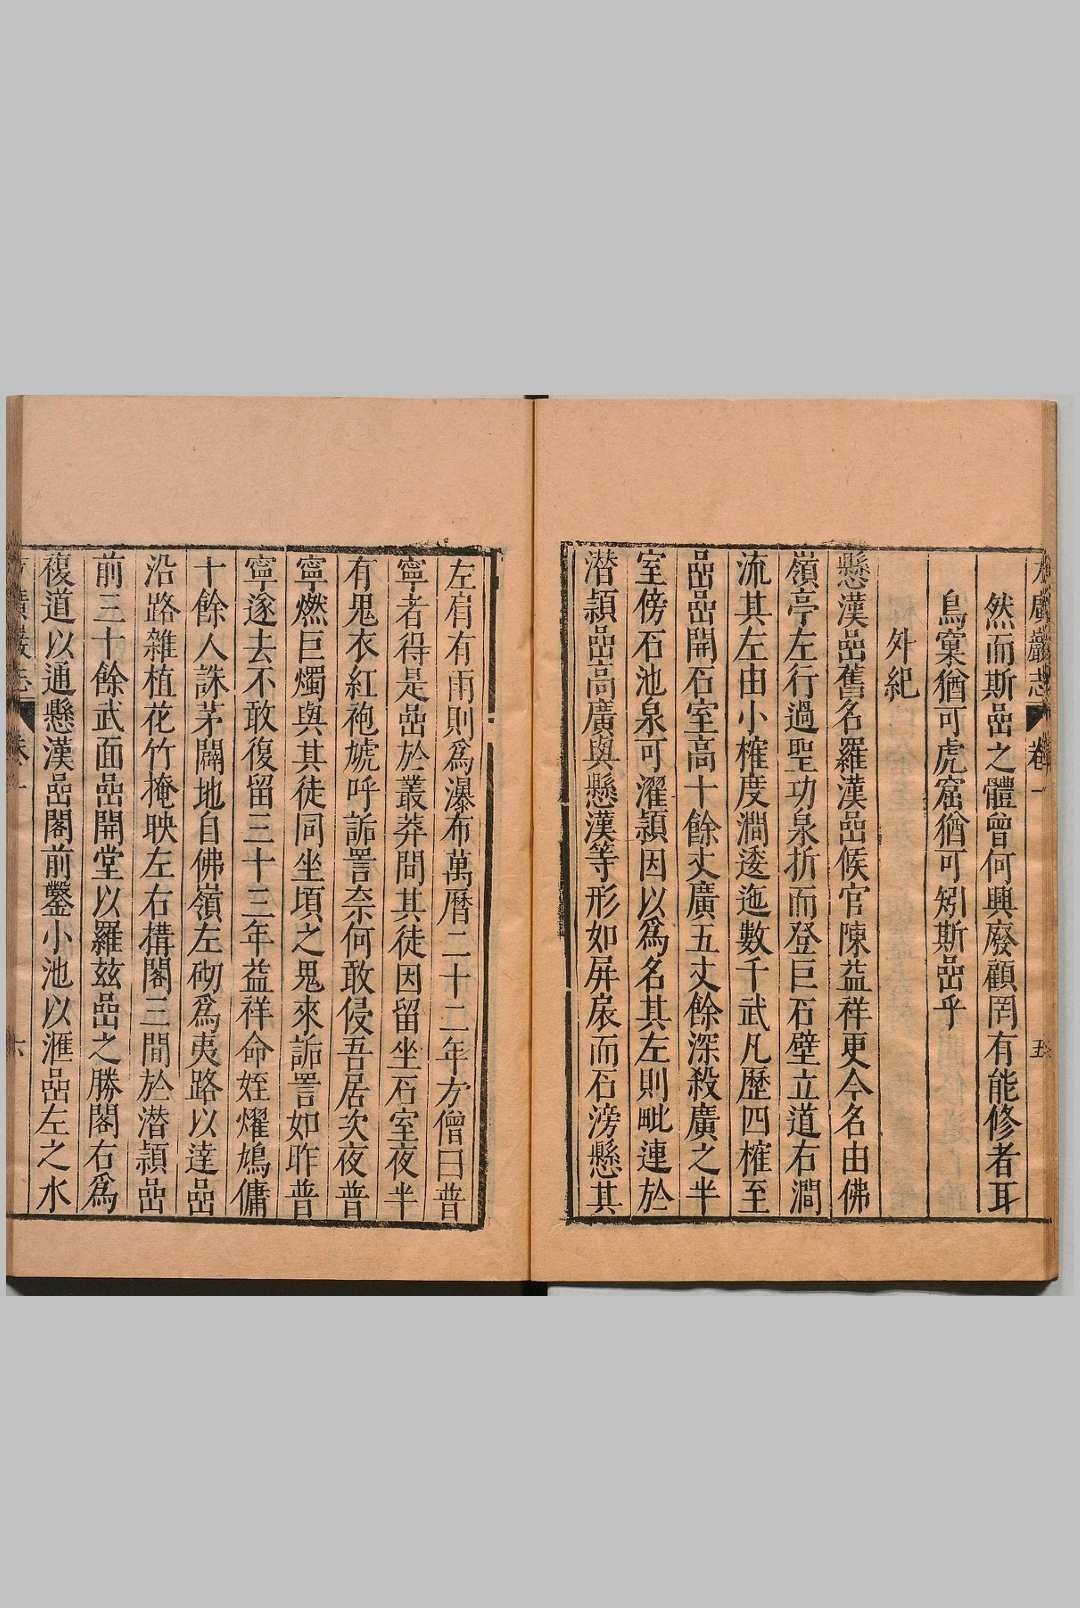 方廣巖志 卷一 五
然而斯嵒之體曾何興廢顧罔有能修者耳
鳥窠猶可虎窟猶可矧斯嵒乎
外紀
懸漢嵒舊名羅漢嵒候官陳益祥更今名由佛
嶺亭左行過聖功泉折而登巨石壁立道右澗
流其左由小榷度澗逶迤數千武凡歷四榷至
嵒嵒開石室高十餘丈廣五丈餘深殺廣之半
室傍石池泉可濯頴因以爲名其左則毗連於
潜頴嵒高廣與懸漢等形如屏扆而石滂懸其
左肩有雨則爲瀑布萬曆二十二年方僧曰普
寧者得是嵒於叢莽間其徒因留坐石室夜半
有鬼衣紅袍號呼詬詈奈何敢侵吾居次夜普
寧燃巨燭與其徒同坐頃之鬼來詬詈如昨普
寧遂去不敢復留三十三年益祥命姪燿鳩傭
十餘人誅茅闢地自佛嶺左砌爲夷路以達嵒
沿路雜植花竹掩映左右構閣三間於潜頴嵒
前三十餘武面嵒開堂以羅茲嵒之勝閣右爲
複道以通懸漢嵒閣前鑿小池以滙嵒左之水
廣巖志 卷一 六